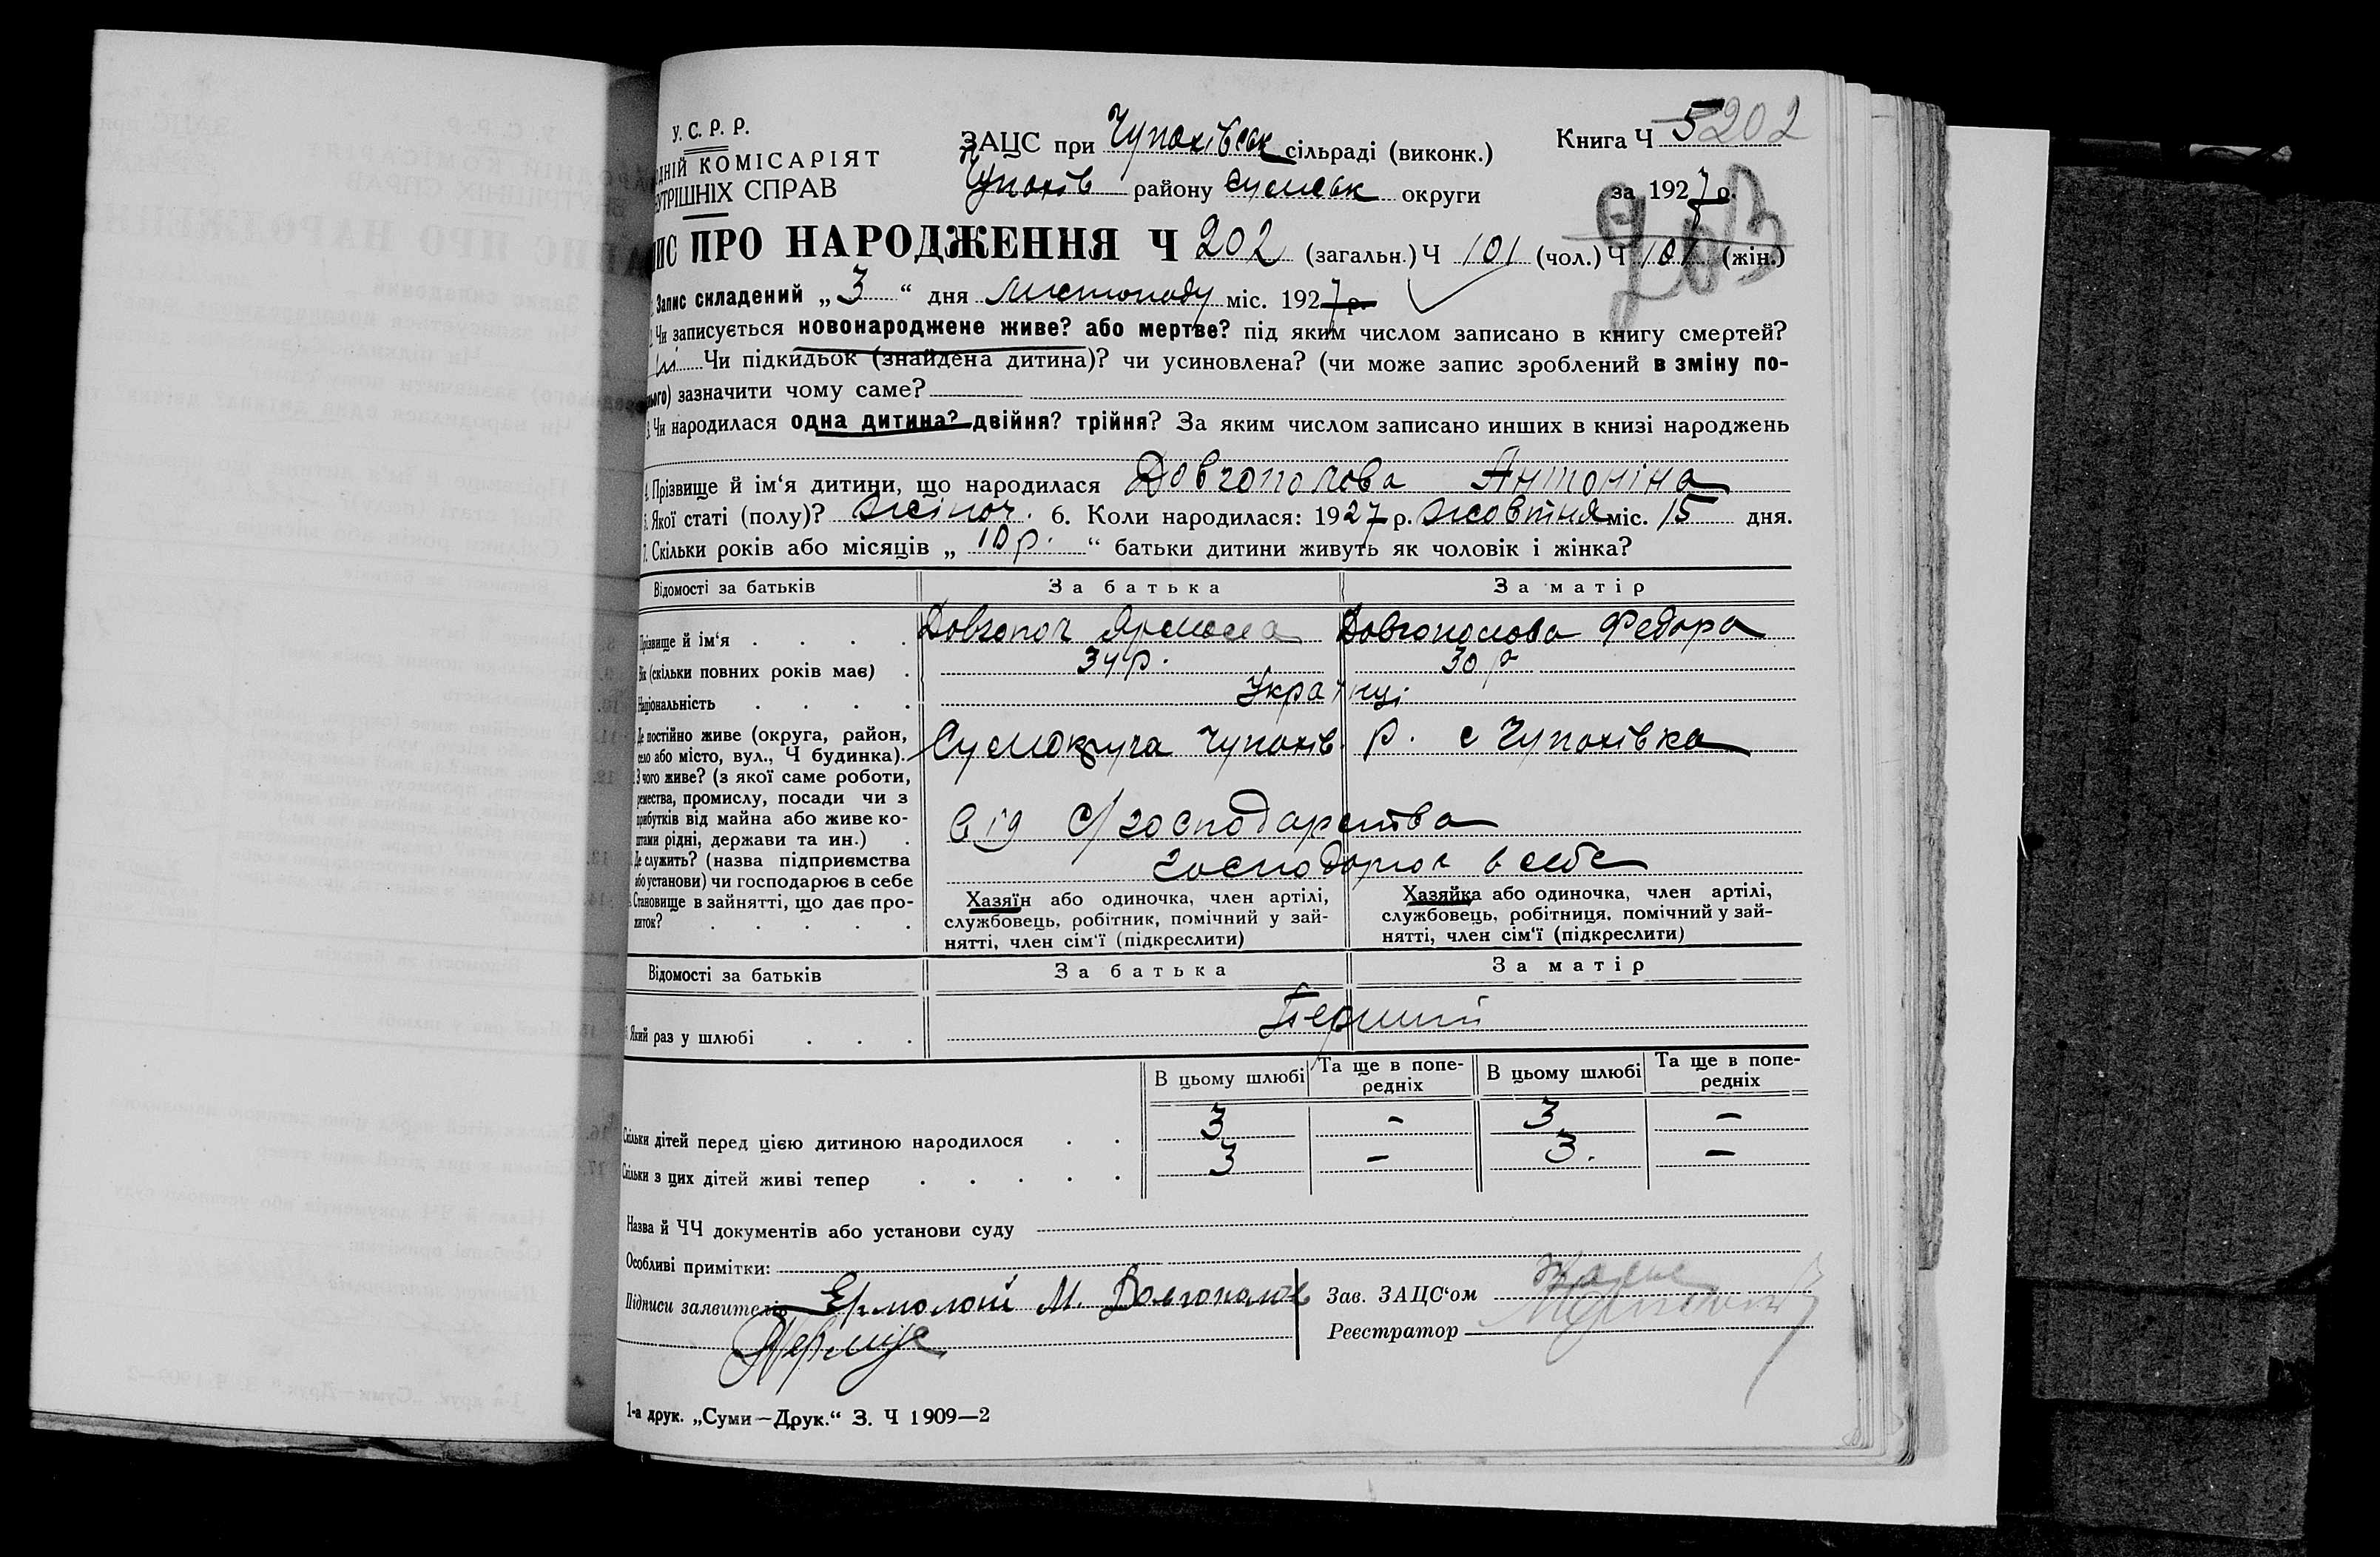 У. С. Р. Р.
ДНІЙ КОМІСАРІЯТ
УТРІШНІХ СПРАВ
ЗАЦС при Чупахівськ сільраді (виконк.)
Чупахів району Сумськ округи
Книга Ч 5 202
за 1927 р.
203
ИС ПРО НАРОДЖЕННЯ Ч 202 (загальн.) Ч 101 (чол.) Ч 101 (жін.)
Запис складений „3“ дня листопаду міс. 1927 р.
Чи записується новонароджене живе? або мертве? під яким числом записано в книгу смертей?
Чи підкидьок (знайдена дитина)? чи усиновлена? (чи може запис зроблений в зміну по-
нього) зазначити чому саме?
3. Чи народилася одна дитина? двійня? трійня? За яким числом записано инших в книзі народжень
4. Прізвище й ім‘я дитини, що народилася Довгополова Антоніна
Якої статі (полу)? жіноч. 6. Коли народилася: 1927 р. жовтня міс. 15 дня.
7. Скільки років або місяців „10 р.“ батьки дитини живуть як чоловік і жінка?
Відомості за батьків За батька За матір
Прізвище й ім‘я . . . . Довгопол Ярмола Довгополова Федора
Вік (скільки повних років має) . 34 р. 30 р
Національність . . . . Українці
Де постійно живе (округа, район,
село або місто, вул., Ч будинка). Сумокруга Чупахів. р. с Чупахівка
З чого живе? (з якої саме роботи,
ремества, промислу, посади чи з
прибутків від майна або живе ко-
штами рідні, держави та ин.) . Від С/господарства
Де служить? (назва підприємства
або установи) чи господарює в себе господарює в себе
Становище в зайнятті, що дає про-
житок? . . . . .
Хазяїн або одиночка, член артілі,
службовець, робітник, помічний у зай-
нятті, член сім‘ї (підкреслити)
Хазяйка або одиночка, член артілі,
службовець, робітниця, помічний у зай-
нятті, член сім‘ї (підкреслити)
Відомості за батьків За батька За матір
Який раз у шлюбі . . . Перший
В цьому шлюбі Та ще в попе-
редніх В цьому шлюбі Та ще в попе-
редніх
Скільки дітей перед цією дитиною народилося . . 3 – 3 –
Скільки з цих дітей живі тепер . . . . . 3 – 3. –
Назва й ЧЧ документів або установи суду
Особливі примітки:
Підписи заявителів Ермолай М. Довгополов
Зав. ЗАЦС‘ом
Реєстратор
1-а друк. „Суми—Друк.“ З. Ч 1909—2